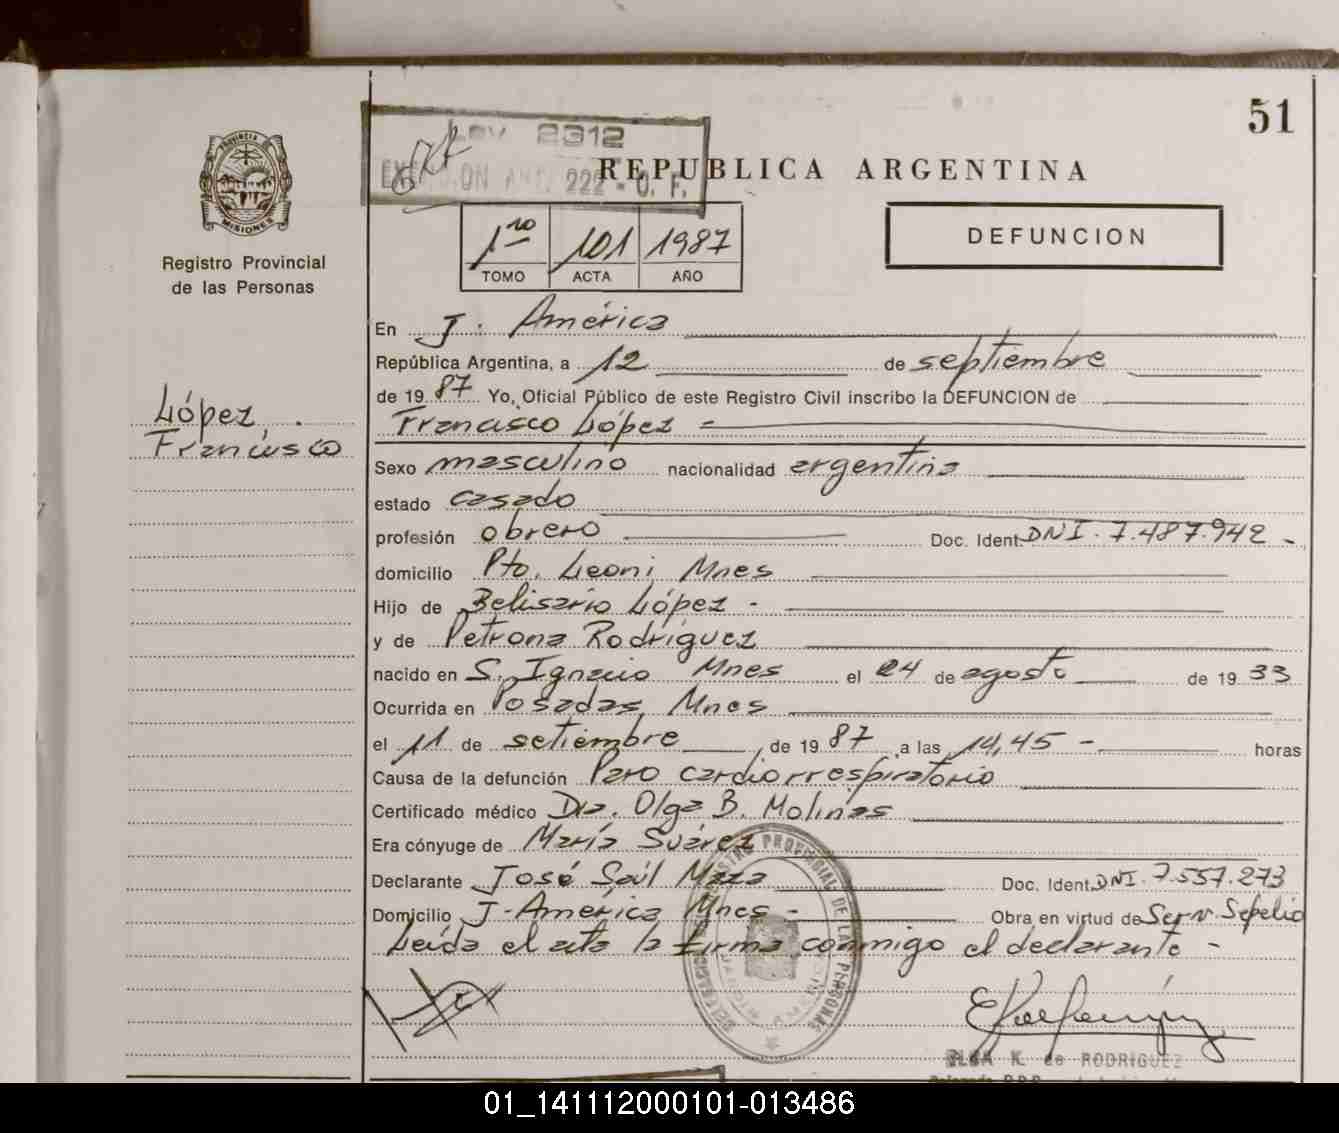 51
LEY 2312
222 - O. F.
REPUBLICA ARGENTINA
PROVINCIA DE
MISIONES
Registro Provincial
de las Personas
1ro 101 1987
TOMO ACTA AÑO
DEFUNCION
En J. América
República Argentina, a 12 de septiembre
de 1987 Yo, Oficial Público de este Registro Civil inscribo la DEFUNCION de
López
Francisco
Francisco López -
Sexo masculino nacionalidad argentina
estado casado
profesión obrero Doc. Ident. DNI. 7.487.942 -
domicilio Pto. Leoni Mnes
Hijo de Belisario López -
y de Petrona Rodríguez
nacido en S. Ignacio Mnes el 24 de agosto de 1933
Ocurrida en Posadas, Mnes
el 11 de setiembre de 1987 a las 14,45 - horas
Causa de la defunción Paro cardiorrespiratorio
Certificado médico Dra. Olga B. Molinas
Era cónyuge de María Suárez
Declarante José Saúl Maza Doc. Ident. DNI. 7.557.273
Domicilio J. América Mnes - Obra en virtud de Serv. Sepelio
Leída el acta la firma conmigo el declarante -
REGISTRO PROVINCIAL DE LAS PERSONAS
ELBA K. de RODRIGUEZ
01_141112000101-013486